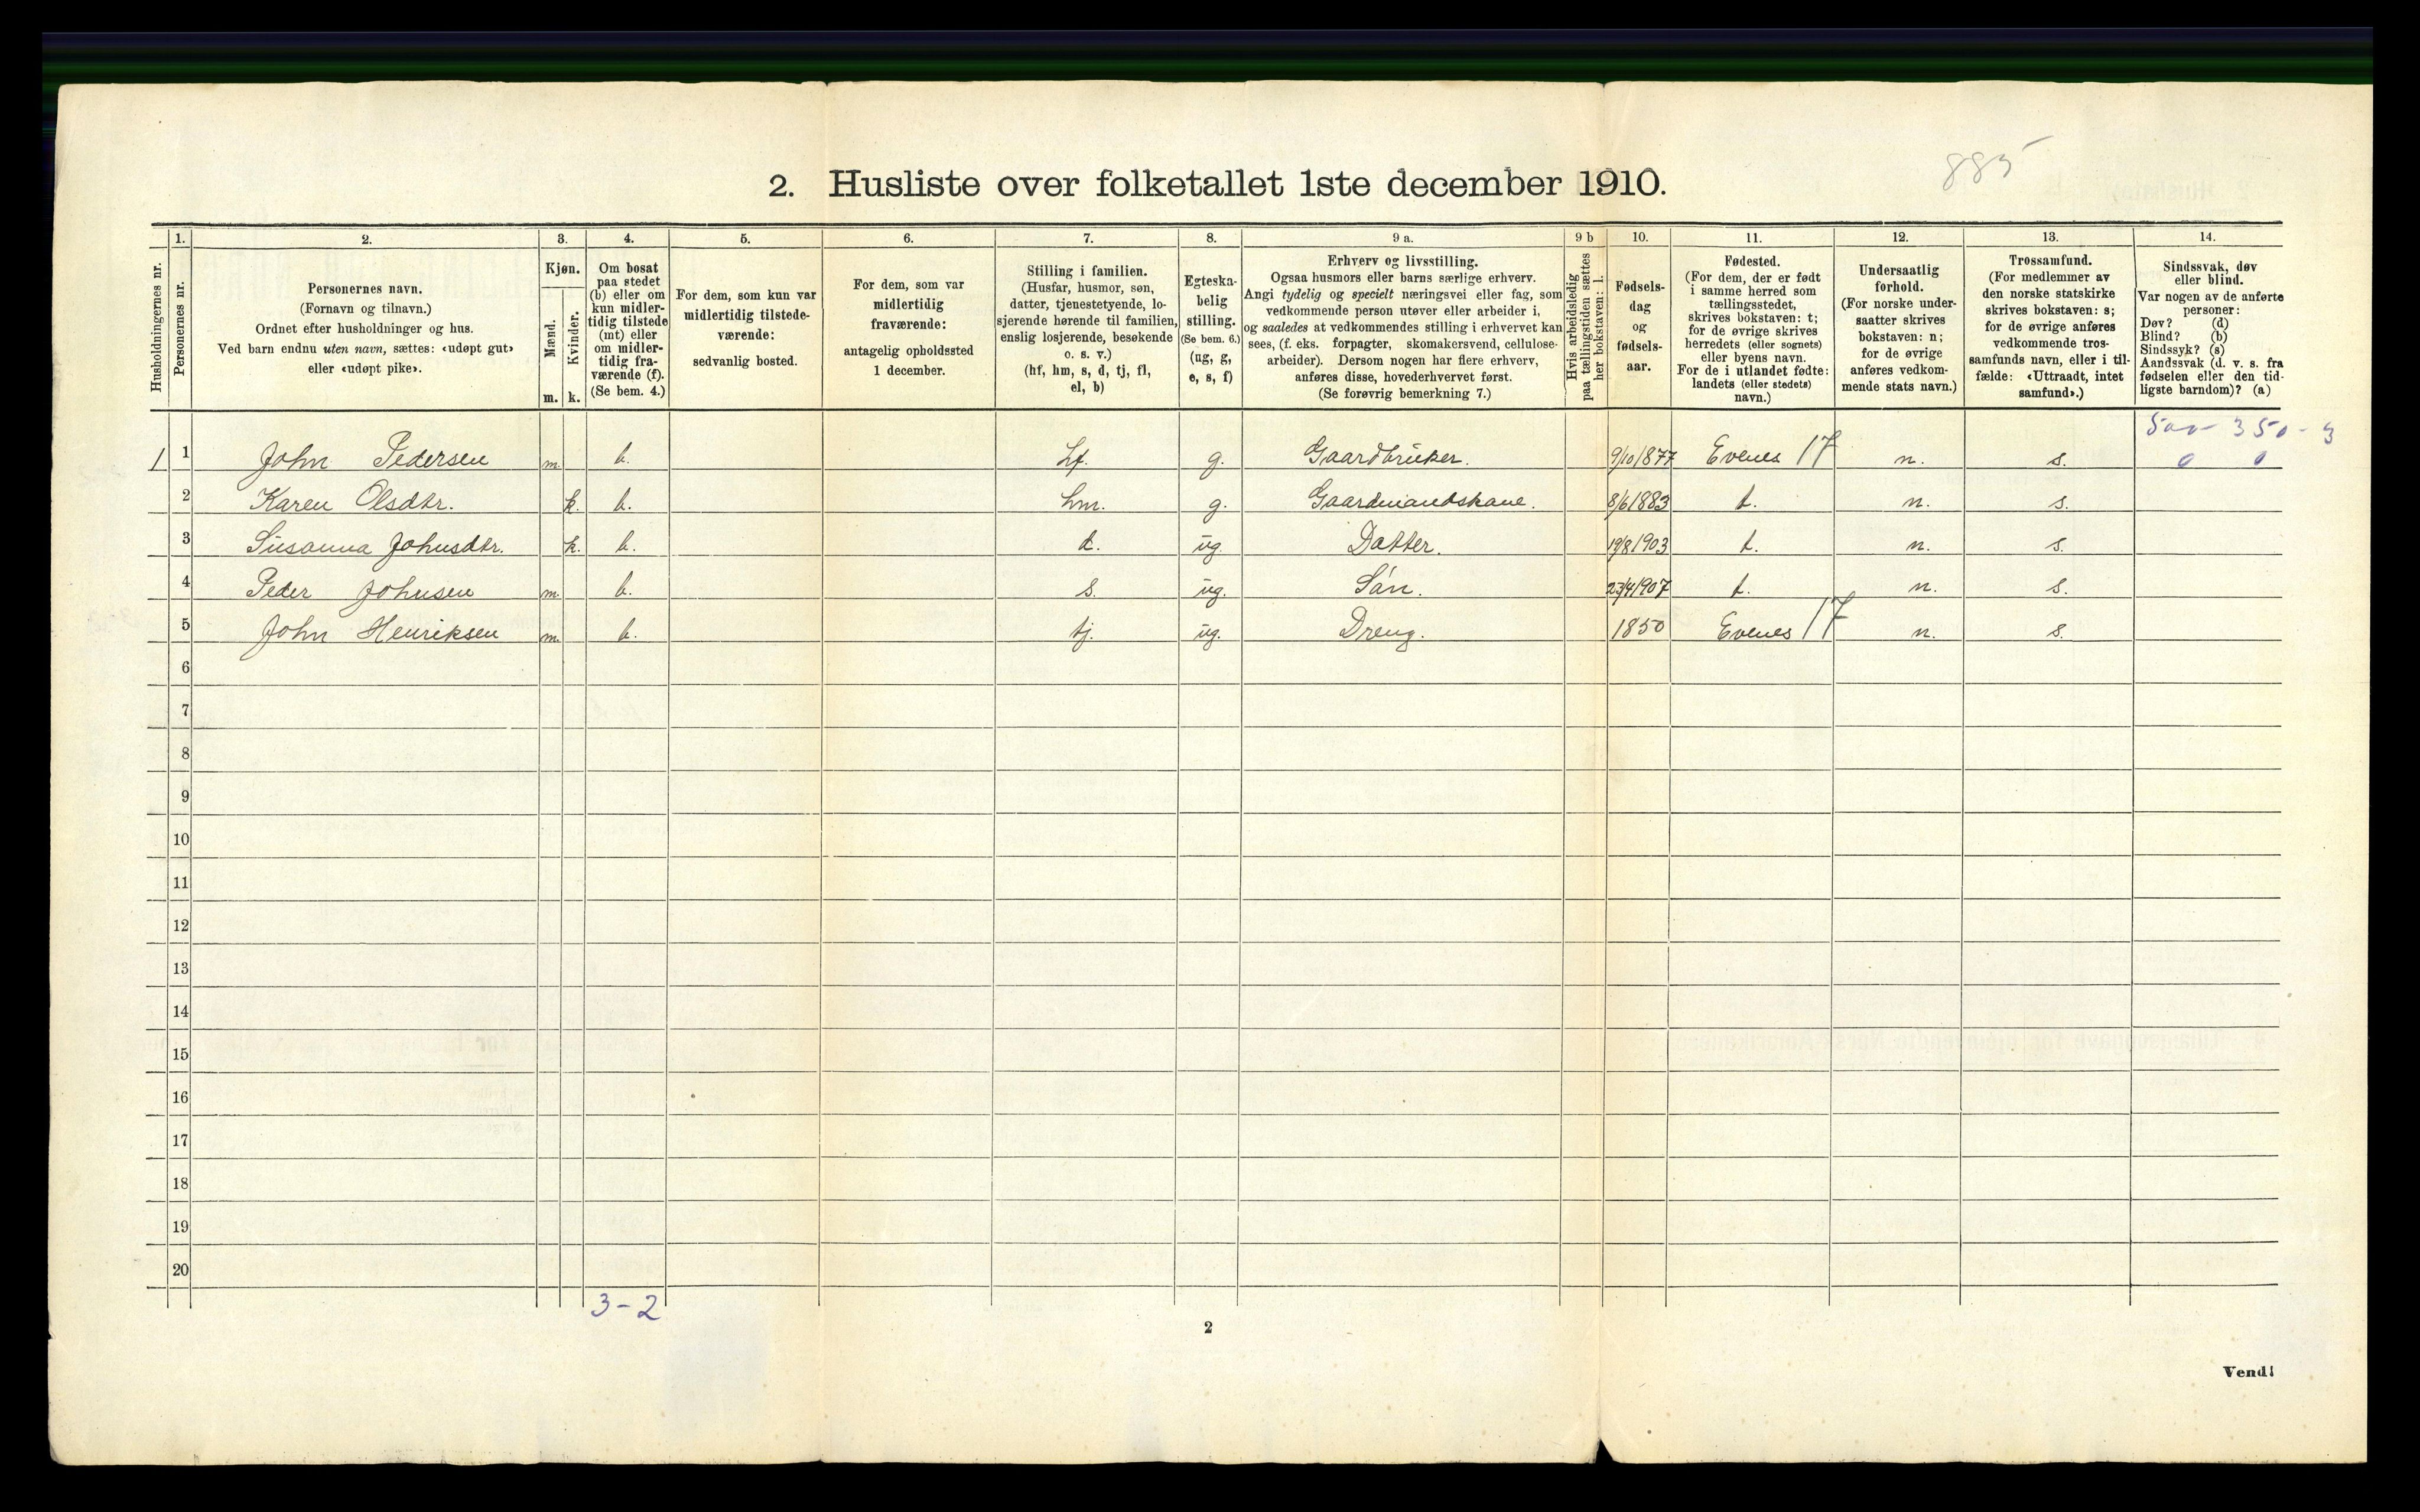 885
2. Husliste over folketallet 1ste december 1910.
1. 2. 3. 4. 5. 6. 7. 8. 9 a. 9 b 10. 11. 12. 13. 14.
Husholdningernes nr.
Personernes nr.
Personernes navn.
(Fornavn og tilnavn.)
Ordnet efter husholdninger og hus.
Ved barn endnu uten navn, sættes: «udøpt gut»
eller «udøpt pike».
Kjøn.
Mænd.
Kvinder.
m. k.
Om bosat
paa stedet
(b) eller om
kun midler-
tidig tilstede
(mt) eller
om midler-
tidig fra-
værende (f).
(Se bem. 4.)
For dem, som kun var
midlertidig tilstede-
værende:
sedvanlig bosted.
For dem, som var
midlertidig
fraværende:
antagelig opholdssted
1 december.
Stilling i familien.
(Husfar, husmor, søn,
datter, tjenestetyende, lo-
sjerende hørende til familien,
enslig losjerende, besøkende
o. s. v.)
(hf, hm, s, d, tj, fl,
el, b)
Egteska-
belig
stilling.
(Se bem. 6.)
(ug, g,
e, s, f)
Erhverv og livsstilling.
Ogsaa husmors eller barns særlige erhverv.
Angi tydelig og specielt næringsvei eller fag, som
vedkommende person utøver eller arbeider i,
og saaledes at vedkommendes stilling i erhvervet kan
sees, (f. eks. forpagter, skomakersvend, cellulose-
arbeider). Dersom nogen har flere erhverv,
anføres disse, hovederhvervet først.
(Se forøvrig bemerkning 7.)
Hvis arbeidsledig
paa tællingstiden sættes
her bokstaven: l.
Fødsels-
dag
og
fødsels-
aar.
Fødested.
(For dem, der er født
i samme herred som
tællingsstedet,
skrives bokstaven: t;
for de øvrige skrives
herredets (eller sognets)
eller byens navn.
For de i utlandet fødte:
landets (eller stedets)
navn.)
Undersaatlig
forhold.
(For norske under-
saatter skrives
bokstaven: n;
for de øvrige
anføres vedkom-
mende stats navn.)
Trossamfund.
(For medlemmer av
den norske statskirke
skrives bokstaven: s;
for de øvrige anføres
vedkommende tros-
samfunds navn, eller i til-
fælde: «Uttraadt, intet
samfund».)
Sindssvak, døv
eller blind.
Var nogen av de anførte
personer:
Døv? (d)
Blind? (b)
Sindssyk? (s)
Aandssvak (d. v. s. fra
fødselen eller den tid-
ligste barndom)? (a)
1 1 John Pedersen m. b. hf. g. Gaardbruker. 9/10 1877 Evenes 17 n. s. 0 0
2 Karen Olsdtr. k. b. hm. g. Gaardmandskone. 8/6 1883 t. n. s.
3 Susanna Johnsdtr. k. b. d. ug. Datter. 19/8 1903 t. n. s.
4 Peder Johnsen m. b. s. ug. Søn. 23/4 1907 t. n. s.
5 John Henriksen m. b. tj. ug. Dreng. 1850 Evenes 17 n. s.
6
7
8
9
10
11
12
13
14
15
16
17
18
19
20
3-2
2
Vend!